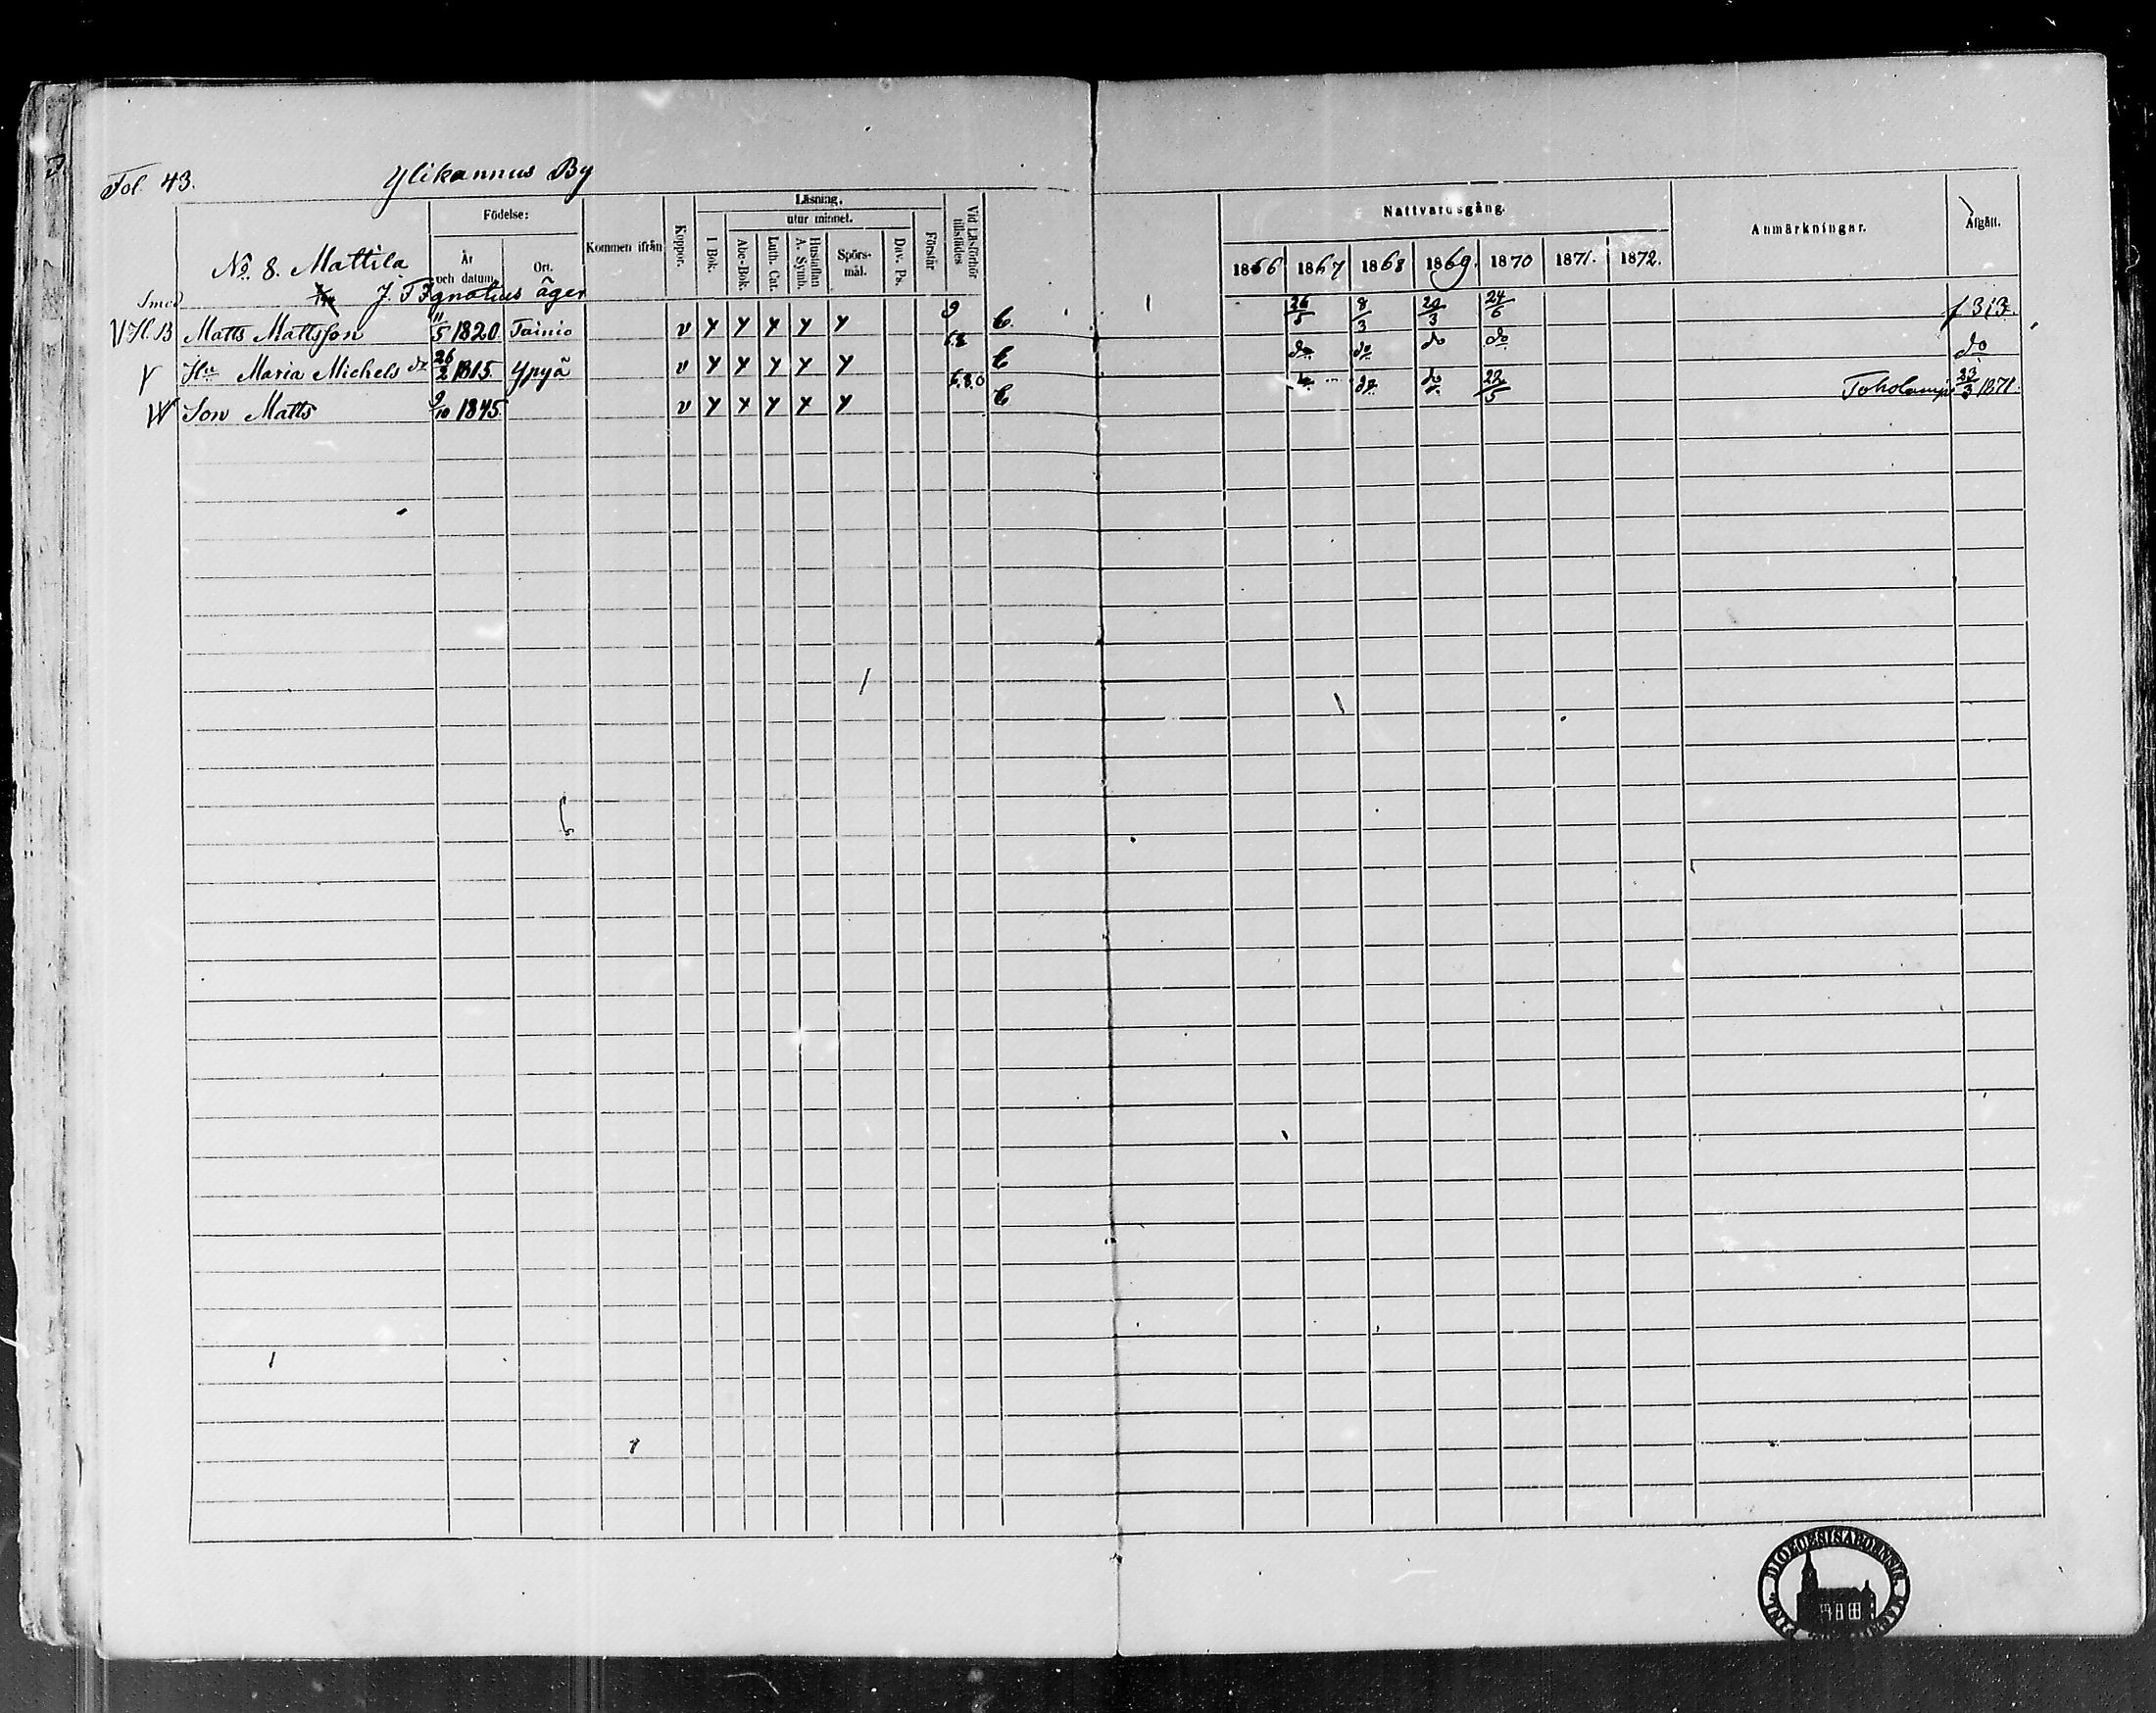 Fol. 43.
Ylikannus By
Födelse:
Läsning.
utur minnet.
Nattvardsgång.
Anmärkningar.
Afgått.
År och datum.
Ort.
Kommen ifrån
Koppor.
I Bok.
Abc-Bok.
Luth. Cat.
Hustaflan A. Symb.
Spörs-mål.
Dav. Ps.
Förstår
Vid Läsförhör tillstädes
1866 1867 1868 1869. 1870 1871. 1872.
No 8. Mattila
J. F. Ignatius äger
Smed
H. B Matts Mattsson 11/5 1820 Tainio v y y y y y 9 26/5 8/3 20/3 24/6 f 313.
Hu Maria Michels dr 26/2 1815 Ypyä v y y y y y 6.8 do do do do do
Son Matts 9/10 1845 v y y y y y 6.8.0 do do 22/5 Toholampi 23/3 1871.